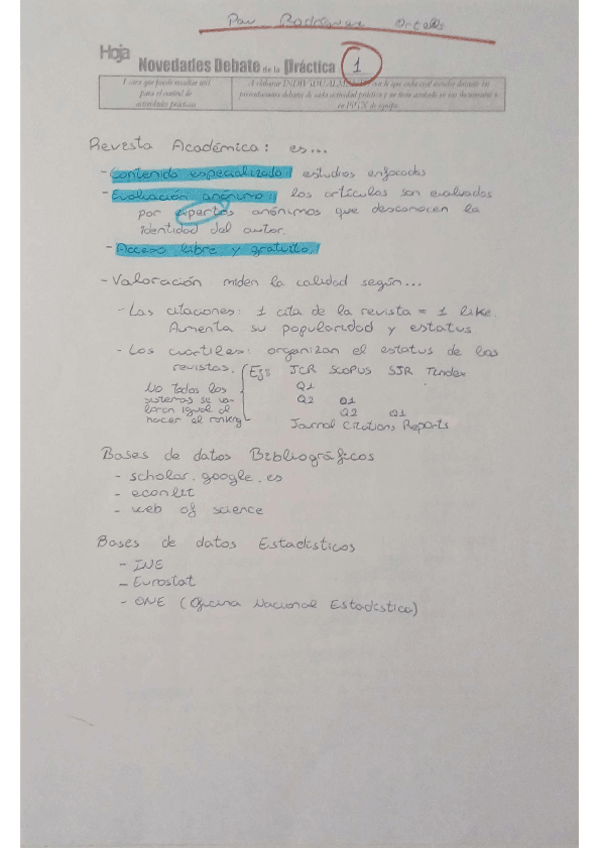 Pau Rodríguez Ortells
Hoja
Novedades Debate de la práctica 1
Tarea que puede resultar útil
para el control de
actividades prácticas
A elaborar INDIVIDUALMENTE
presentaciones-debates de cada actividad práctica
en PPTX de equipo.
Revista Académica: es...
- Contenido especializado: estudios enfocados
- Evaluación anónimo: los artículos son evaluados
por expertos anónimos que desconocen la
identidad del autor.
- Acceso libre y gratuito.
- Valoración miden la calidad según...
- Las citaciones: 1 cita de la revista = 1 like.
Aumenta su popularidad y estatus
- Los cuartiles: organizan el estatus de las
revistas. Ej: JCR SCOPUS SJR
No todos los Q1
sistemas se va- Q2 Q1
loran igual al Q2 Q1
hacer el ranking Journal Citations Reports
Bases de datos Bibliográficos
- scholar.google.es
- econlit
- web of science
Bases de datos Estadísticos
- INE
- Eurostat
- ONE (Oficina Nacional Estadística)